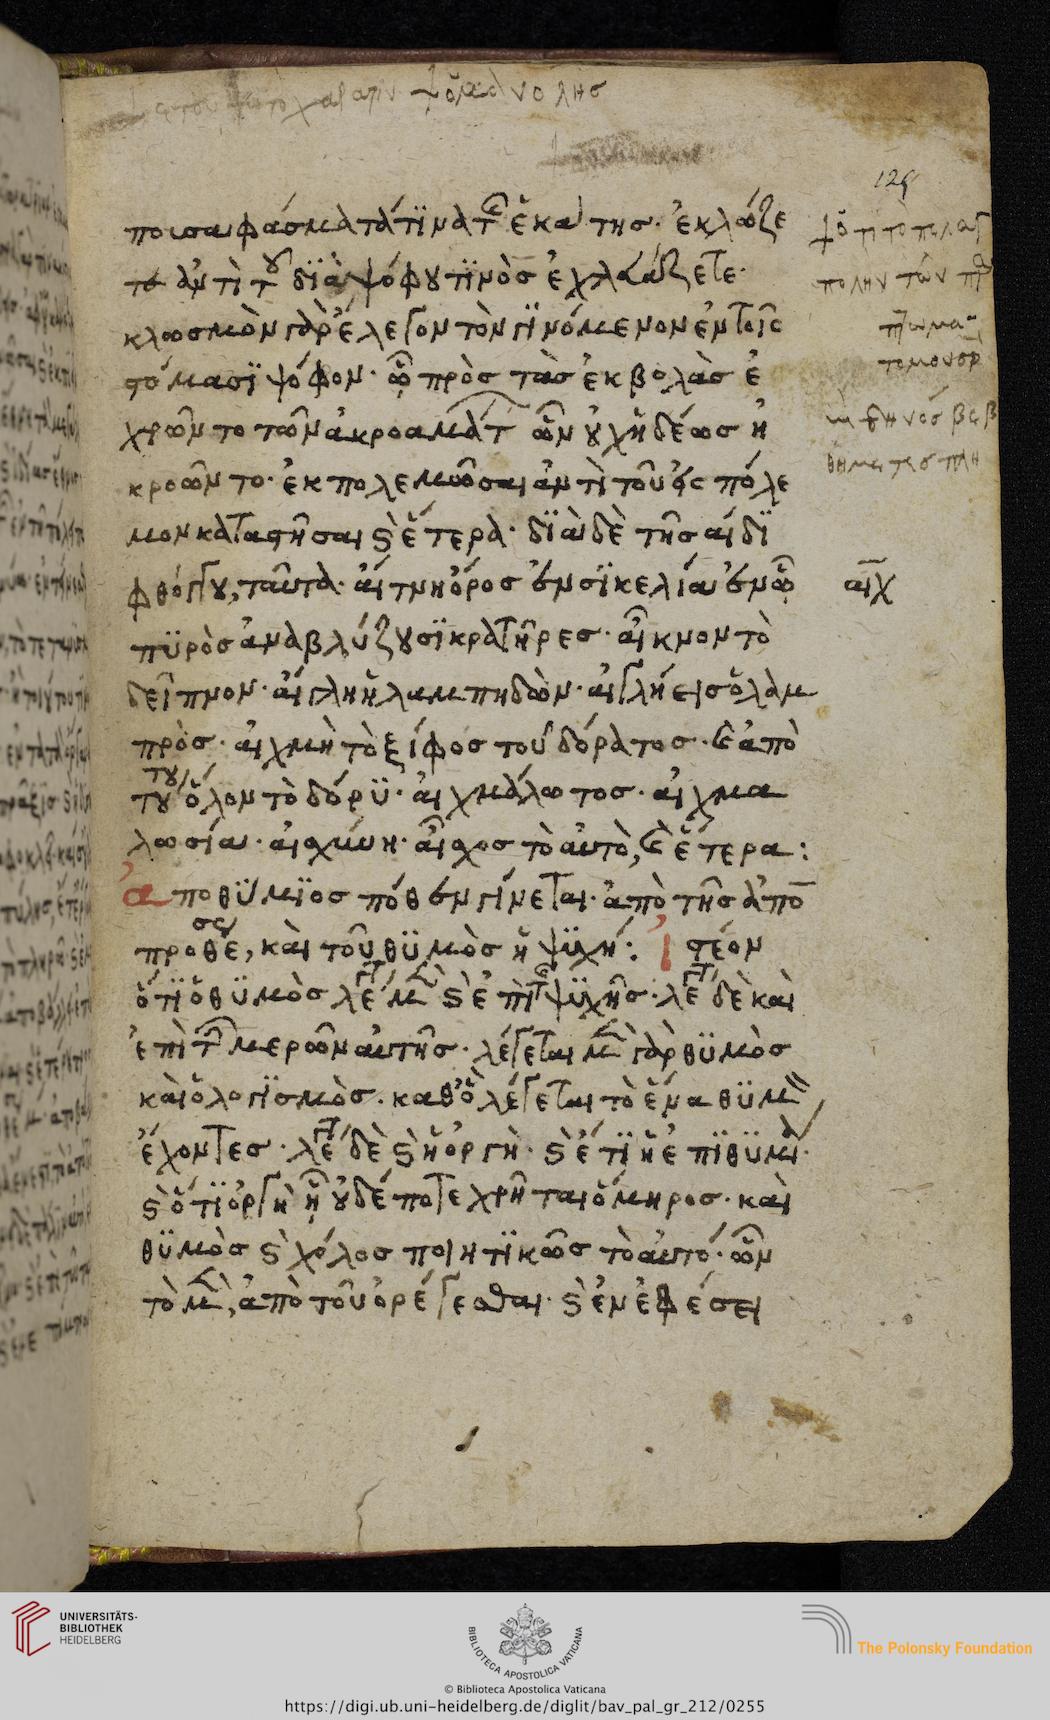 126
ποισαι φάσματά τινα τ(ῆς) ἑκάτης· ἐκλώζε
το ἀντὶ τοῦ διὰ ψόφου τινὸς ἐχλευάζετε·
κλωσμὸν γὰρ ἔλεγον τὸν γινόμενον ἐν τοῖς
στόμασι ψόφον· ὧ πρὸς τὰς ἐκβολὰς ἐ
χρῶντο τῶν ἀκροαμάτ ὧν οὐχ ἡδέως ἠ
κροῶντο· ἐκπολεμῶσαι ἀντὶ τοῦ εἰς πόλε
μον καταστῆσαι ϗ ἕτερα· διὰ δὲ τῆς αι δι
φθόγγου, ταῦτα· αἴτνη ὄρος ἐν σικελία ἐν ὧ
πυρὸς ἀναβλύζουσι κρατῆρες· αἶκνον τὸ
δεῖπνον· αἴγλη ἡ λαμπηδών· αἰγλήεις ὁ λαμ
πρός· αἰχμὴ τὸ ξίφος τοῦ δόρατος· ϗ ἀπὸ
τού
του ὅλον τὸ δόρυ· αἰχμάλωτος· αἰχμα
λωσία· αἰσχύνη· αἶσχος τὸ αὐτὸ, ϗ ἕτερα:
ἀποθύμιος πόθεν γίνεται· ἀπὸ τῆς ἀπὸ
προθέσε, καὶ τοῦ θυμὸς ἡ ψυχή: Ἰστέον
ὅτι ὁ θυμὸς λέγετ μ ϗ ἐπὶ τ ψυχῆς· λέγετ δὲ καὶ
ἐπὶ τ μερῶν αὐτῆς· λέγεται μ γὰρ θυμὸς
καὶ ὁ λογισμὸς· καθὸ λέγεται τὸ ἕνα θυμὸ
ἔχοντες· λέγετ δὲ ϗ ἡ ὀργὴ· ϗ ἔτι ἡ ἐπιθυμί·
ϗ ὅτι ὀργὴ ἧ οὐδέποτε χρῆται ὅμηρος· καὶ
θυμὸς ϗ χόλος ποιητικῶς τὸ αὐτό· ὧν
τὸ μ, ἀπὸ τοῦ ὀρέγεσθαι· ϗ ἐν ἐφέσει
αἴχ
UNIVERSITÄTS-
BIBLIOTHEK
HEIDELBERG
BIBLIOTECA APOSTOLICA VATICANA
The Polonsky Foundation
© Biblioteca Apostolica Vaticana
https://digi.ub.uni-heidelberg.de/diglit/bav_pal_gr_212/0255